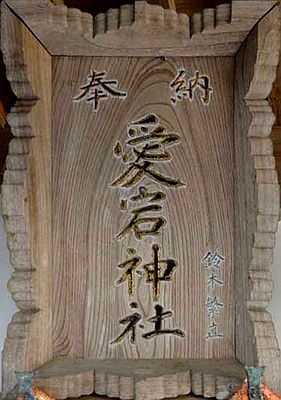 奉納
愛宕神社
鈴木繁直